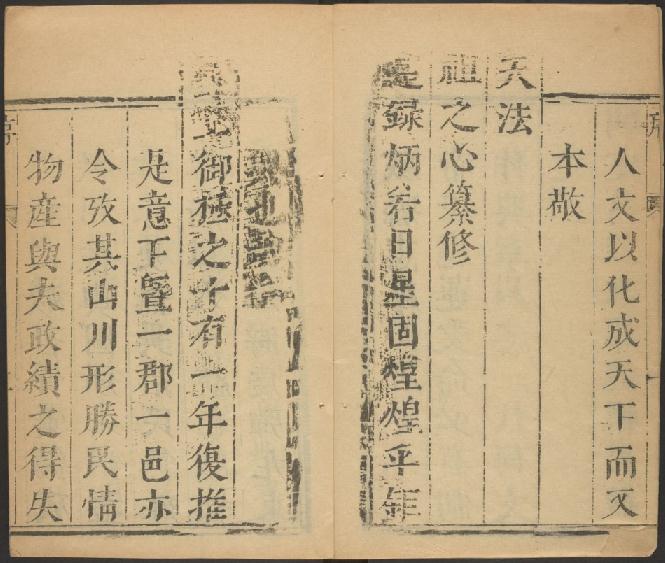 人文以化成天下而又
本敬
天法
祖之心纂修
是録炳若日星固煌煌乎年
皇上御極之十有一年復推
是意下暨一郡一邑亦
令攷其山川形勝民情
物産與夫政績之得失
序